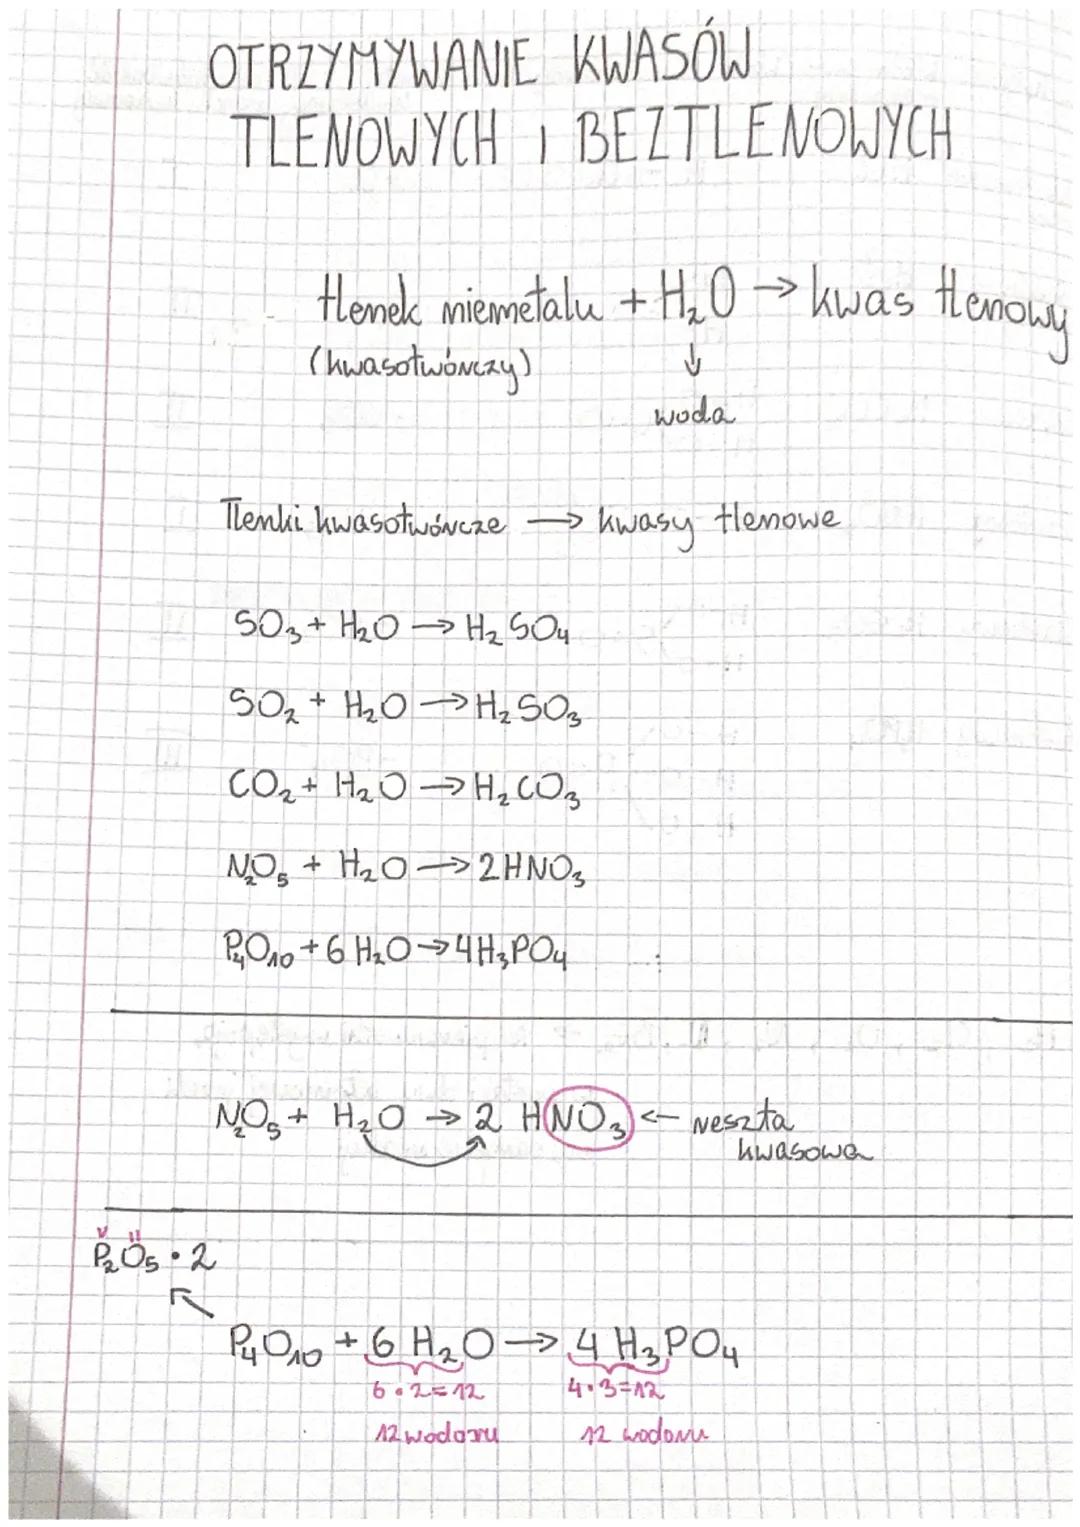 OTRZYMYWANIE KWASÓW
TLENOWYCH I BEZTLENOWYCH
tlenek niemetalu + H₂O → kwas tlenowy
(kwasotwórczy) ↓
woda
Tlenki kwasotwórcze → kwasy tlenowe
SO₃ + H₂O → H₂SO₄
SO₂ + H₂O → H₂SO₃
CO₂ + H₂O → H₂CO₃
N₂O₅ + H₂O → 2HNO₃
P₄O₁₀ + 6H₂O → 4H₃PO₄
N₂O₅ + H₂O → 2 HNO₃ ← reszta
kwasowa
V II
P₂O₅ · 2
P₄O₁₀ + 6 H₂O → 4 H₃PO₄
6·2=12 4·3=12
12 wodoru 12 wodoru